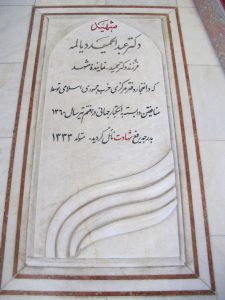 شهید
دکتر عبدالحمید دیالمه
فرزند دکتر مجید، نماینده مشهد
که در انفجار دفتر مرکزی حزب جمهوری اسلامی توسط
منافقین وابسته به استکبار جهانی در هفتم تیر سال ۱۳۶۰
بدرجه رفیع شهادت نائل گردید. متولد ۱۳۳۳